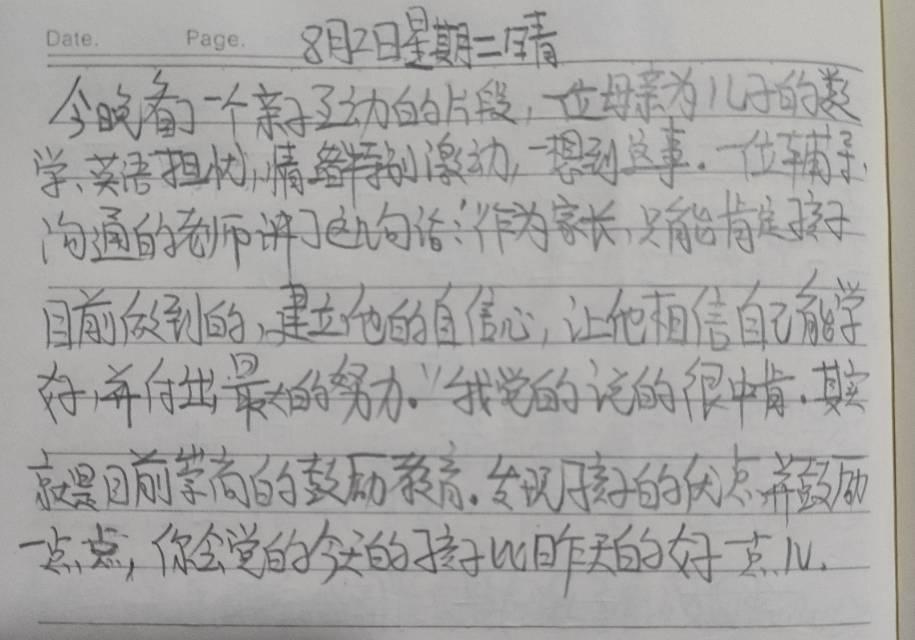 Date. Page. 8月2日星期二晴
今晚看了一个亲子互动的片段,一位母亲为儿子的数
学、英语担忧,情绪特别激动,一想到这事.一位辅导、
沟通的老师讲了这几句话:“作为家长,只能肯定孩子
目前做到的,建立他的自信心,让他相信自己能学
好,并付出最大的努力.”我觉的说的很中肯.其实
就是目前崇尚的鼓励教育.发现孩子的优点并鼓励
一点点,你会觉的今天的孩子比昨天的好一点儿.